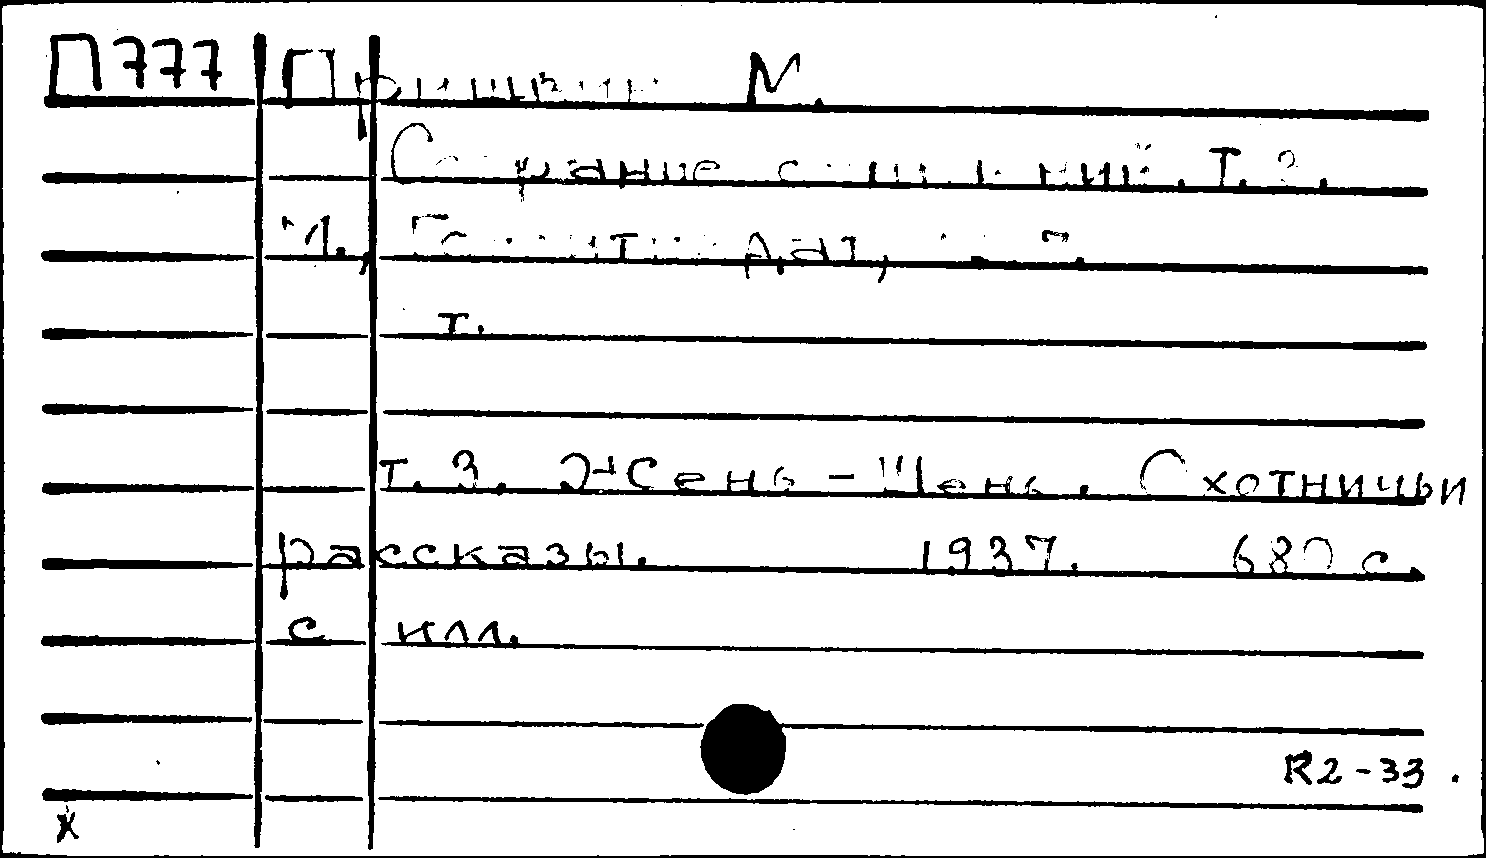 П777 Пришвин М.
Собрание сочинений. Т. 3.
М., Гослитиздат,
т.
т. 3. Жень-Шень. Охотничьи
рассказы. 1937. 680 с.
с илл.
R2-33.
ж